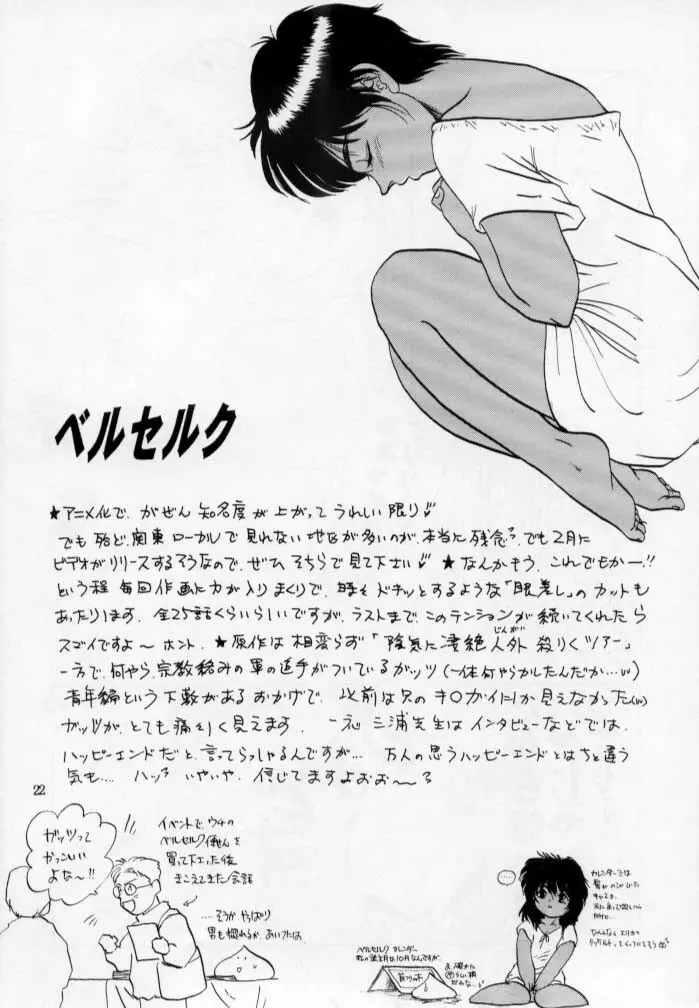 ベルセルク
★アニメ化で、がぜん 知名度が上がって うれしい限り
でも 殆ど、関東ローカルで見れない地区が多いのが、本当に残念、でも2月に
ビデオがリリースするそうなので、ぜひ そちらで見て下さい ★なんかもう、これでもかー!!
という程 毎回作画に力が入りまくりで、時々ドキッとするような「眼差し」のカットも
あったりします。全25話くらいらしいですが、ラストまで、このテンションが続いてくれたら
スゴイですよ〜ホント、★原作は相変らず「陰気に凄絶人外殺りくツアー」
じんがい
一方で、何やら、宗教絡みの軍の追手がついているガッツ(一体何やらかしたんだか…
青年編という下敷があるおかげで、以前は只のキ○ガイにしか見えなかった
ガッツが、とても痛々しく見えます。一応 三浦先生はインタビューなどでは、
ハッピーエンドだと、言ってらっしゃるんですが…、万人の思うハッピーエンドとはちと違う
気も…. ハッ いやいや、信じてますよおお〜
22
ガッツって
かっこいい
よな〜!!
イベントで、ウチの
ベルセルク
買って下さった後
きこえてきた会話
……そうか、やっぱり
男も惚れるか、あいつは、
ベルセルク カレンダー
私の誕生月は10月なんですが、
…
カレンダーでは
髪がのびていた
キャスカ、